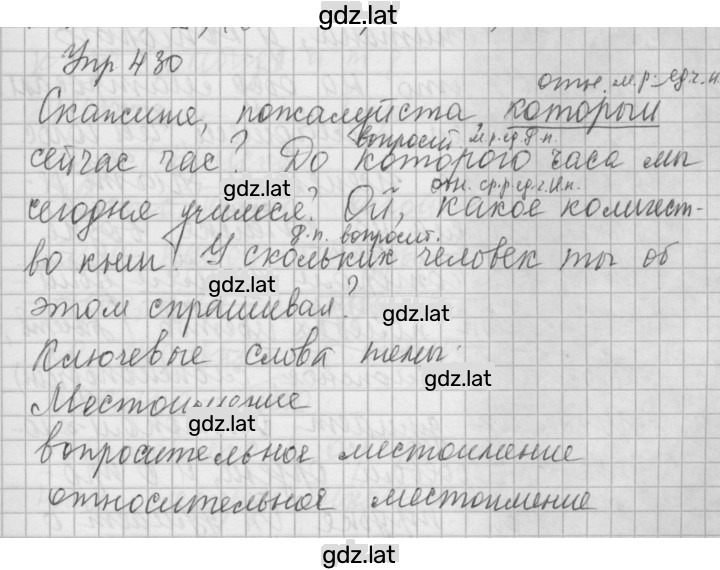 gdz.lat
Упр 430
отн. м.р. ед.ч. и
Скажите, пожалуйста который
вопросит м.р. ед. Р.п.
сейчас час? До которого часа мы
gdz.lat
отн. ср.р. ед.ч. И.п.
сегодня учимся? Ой, какое количест-
Р.п. вопросит.
во книг! У скольких человек ты об
gdz.lat
этом спрашивал?
gdz.lat
Ключевые слова темы:
gdz.lat
Местоимение
gdz.lat
вопросительное местоимение
относительное местоимение
gdz.lat